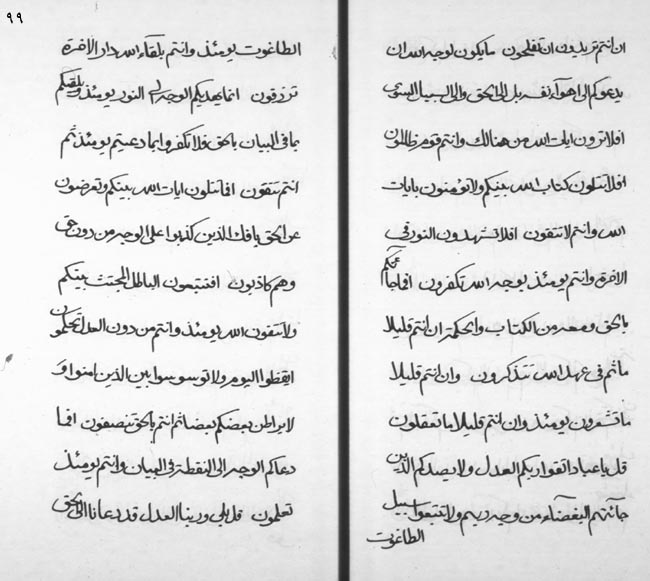 ان انتم تريدون ان تفلحون ما يكون لوجه الله ان
يدعوكم الى اهوآء نفسه بل الى الحق والى السبيل السوى
افلا ترون ايات الله من هنالك وانتم قوم ظالمون
افلا تتلون كتاب الله بينكم ولا تؤمنون بايات
الله وانتم لا تتقون افلا تشهدون النور فى
الاخرة وانتم يومئذ بوجه الله تكفرون افما جآئكم
بالحق ومعه من الكتاب والحكمة ان انتم قليلا
ما ثم فى عهد الله تتذكرون وان انتم قليلا
ما تشعرون يومئذ وان انتم قليلا ما تعقلون
قل يا عباد اتقوا ربكم العدل ولا يصدكم الذين
جآئتهم البغضآء من وجه ربهم ولا تتبعوا سبيل
الطاغوت
٩٩
الطاغوت يومئذ وانتم بلقاء الله دار الاخرة
ترزقون انما يهديكم الوجه الى النور يومئذ
بما فى البيان بالحق فلا تكفروا بما دعيتم يومئذ ثم
انتم تتقون افا تتلون ايات الله بينكم وتعرضون
عن الحق بافك الذين كذبوا على الوجه من دون حق
وهم كاذبون افتتبعون الباطل المجتث بينكم
ولا تتقون الله يومئذ وانتم من دون العدل تحكمون
ايقظوا اليوم ولا توسوسوا بين الذين امنوا
بعضكم بعضا ثم انتم بالحق تنصفون افما
دعاكم الوجه الى النقطة فى البيان وانتم يومئذ
تعلمون قل بلى وربنا العدل قد دعانا الى الحق